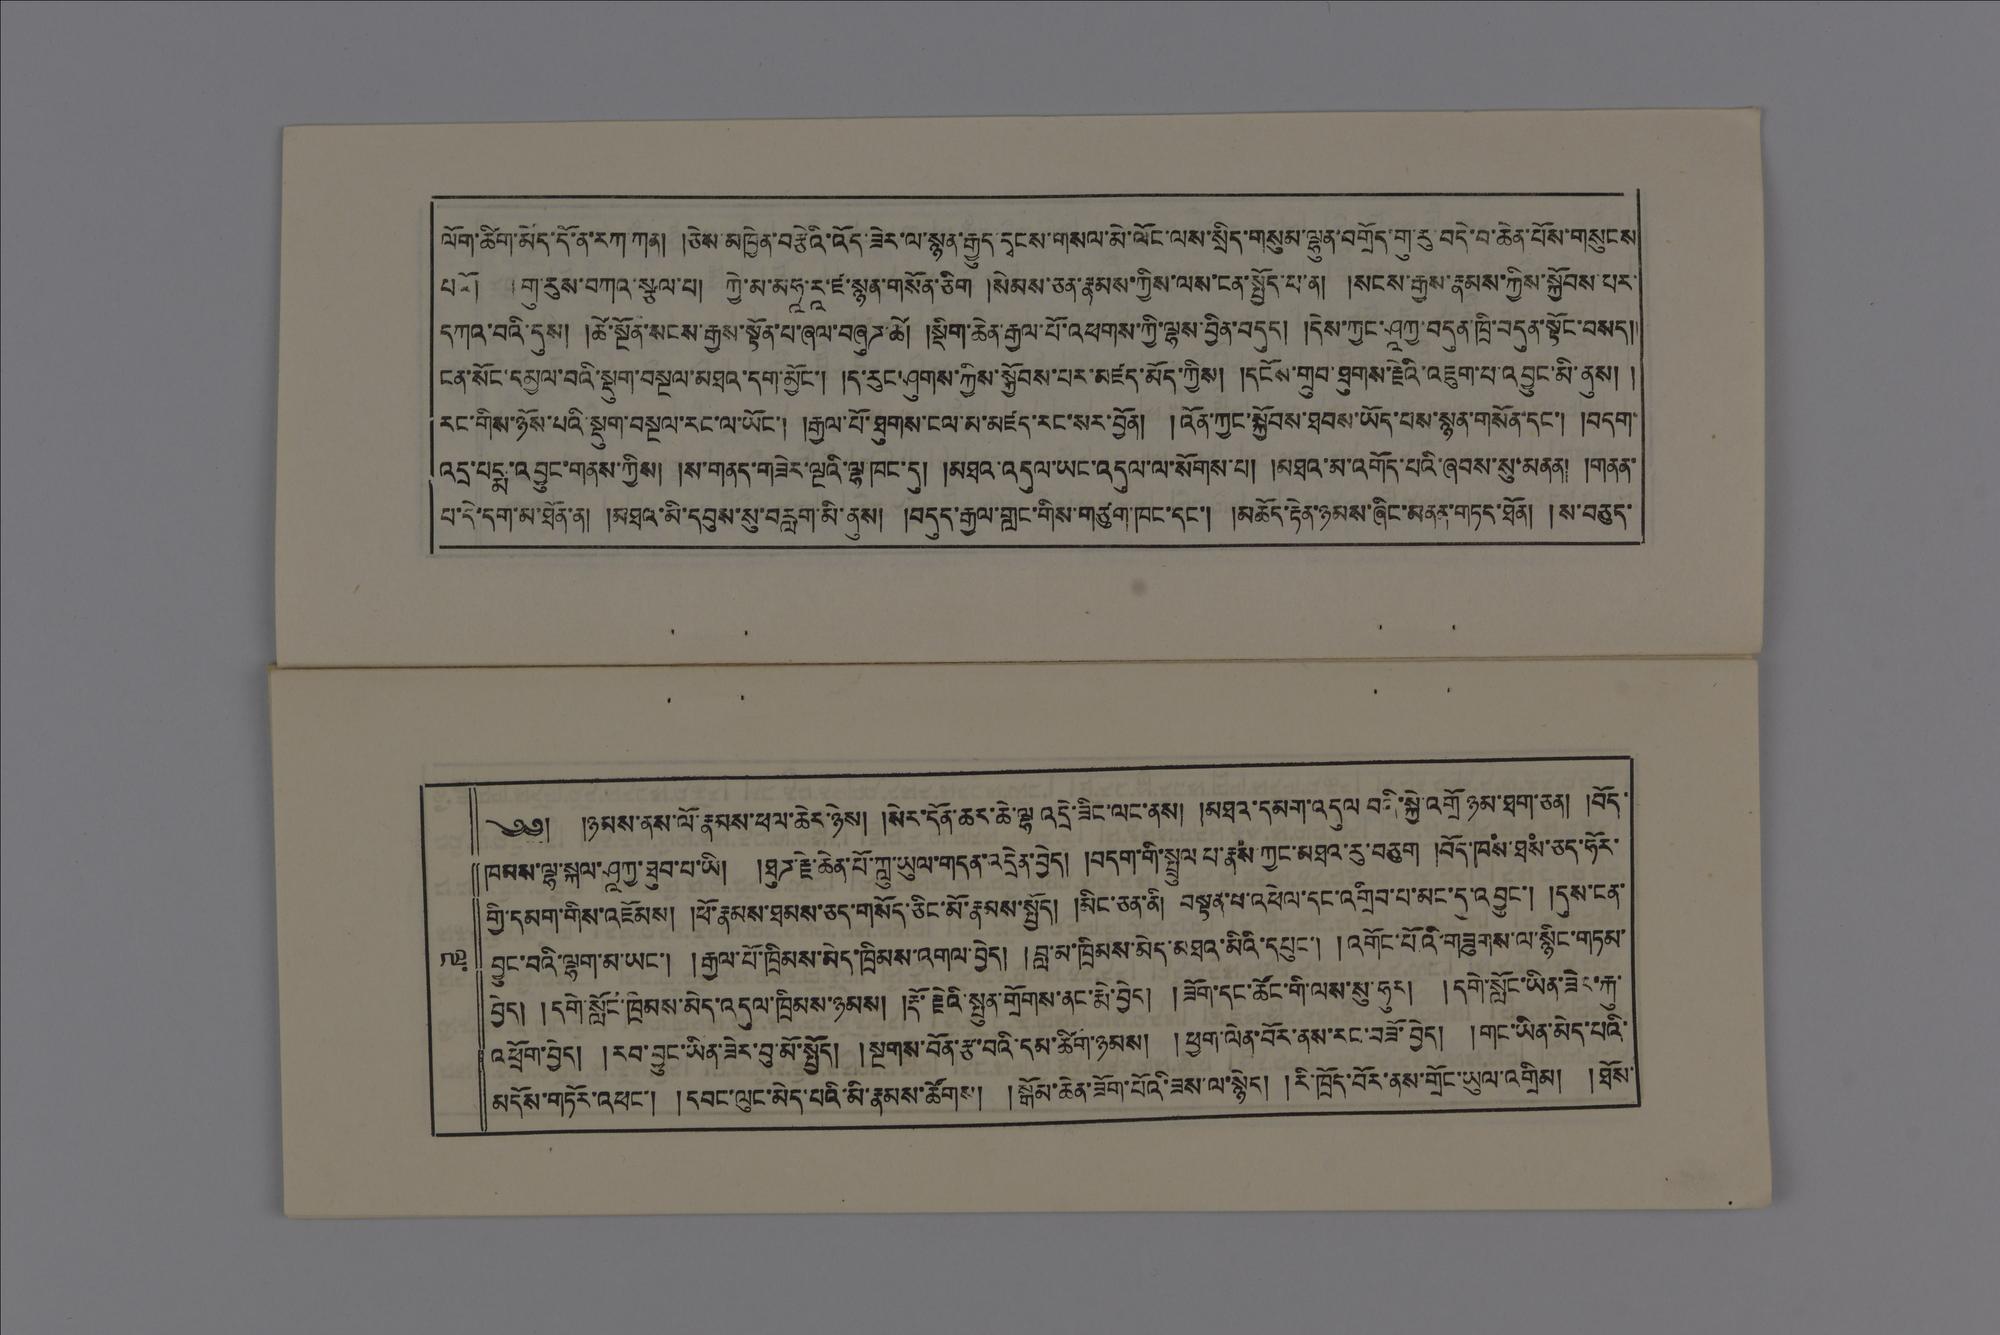 ལོག་ཚིག་མེད་དོན་རཀ་ཀན། །ཅེས་མཁྱེན་བརྩེའི་འོད་ཟེར་ལ་སྙན་རྒྱུད་དྭངས་གསལ་མེ་ལོང་ལས་སྲིད་གསུམ་ལྷུན་བགྲོད་གུ་རུ་བདེ་བ་ཆེན་པོས་གསུངས
པའོ། །གུ་རུས་བཀའ་སྩལ་པ། ཀྱེ་མ་མཧཱ་རཱ་ཛ་སྙན་གསོན་ཅིག །སེམས་ཅན་རྣམས་ཀྱིས་ལས་ངན་སྤྱོད་པ་ན། །སངས་རྒྱས་རྣམས་ཀྱིས་སྐྱོབས་པར་
དཀའ་བའི་དུས། །ཚེ་སྔོན་སངས་རྒྱས་སྟོན་པ་ཞལ་བཞུཊ་ཚེ། །སྡིག་ཆེན་རྒྱལ་པོ་འཕགས་ཀྱི་ལྷས་བྱིན་བདུད། །དེས་ཀྱང་ཤཱཀྱ་བདུན་ཁྲི་བདུན་སྟོང་བསད།།
ངན་སོང་དམྱལ་བའི་སྡུག་བསྔལ་མཐའ་དག་མྱོང་། །ད་རུང་ཤུགས་ཀྱིས་སྐྱོབས་པར་མཛད་མོད་ཀྱིས། །དངོས་གྲུབ་ཐུགས་རྗེའི་འཇུག་པ་འབྱུང་མི་ནུས། །
རང་གིས་ཉེས་པའི་སྡུག་བསྔལ་རང་ལ་ཡོང་། །རྒྱལ་པོ་ཐུགས་ངལ་མ་མཛད་རང་སར་བྱོན། །འོན་ཀྱང་སྐྱོབས་ཐབས་ཡོད་པས་སྙན་གསོན་དང་། །བདག་
འདྲ་པདྨ་འབྱུང་གནས་ཀྱིས། །ས་གནད་གཟེར་ལྔའི་ལྷ་ཁང་དུ། །མཐའ་འདུལ་ཡང་འདུལ་ལ་སོགས་པ། །མཐའ་མ་འགོད་པའི་ཞབས་སུ་མནན། །གནན་
པ་དེ་དག་མ་ཐོན་ན། །མཐའ་མི་དབུས་སུ་བརླག་མི་ནུས། །བདུད་རྒྱལ་གླང་གིས་གཙུག་ཁང་དང་། །མཆོད་རྟེན་ཉམས་ཞིང་མནན་གཏད་ཐོན། །ས་བཅུད་
༄༅། །ཉམས་ནས་ལོ་རྣམས་ཕལ་ཆེར་ཉེས། །སེར་དོན་ཆར་ཆེ་ལྷ་འདྲེ་ཟིང་ལང་ནས། །མཐའ་དམག་འདུལ་བའི་སྐྱེ་འགྲོ་ཉམ་ཐག་ཅན། །བོད་
ཁམས་ལྷ་སྐལ་ཤཱཀྱ་ཐུབ་པ་ཡི། །ཐུཊ་རྗེ་ཆེན་པོ་ཀླུ་ཡུལ་གདན་འདྲེན་བྱེད། །བདག་གི་སྤྲུལ་པ་རྣམས་ཀྱང་མཐའ་རུ་བཅུག །བོད་ཁམས་ཐམས་ཅད་ཧོར་
གྱི་དམག་གིས་འཇོམས། །ཕོ་རྣམས་ཐམས་ཅད་གསོད་ཅིང་མོ་རྣམས་སྤྱོད། །མིང་ཅན་ནི། བསྟན་པ་འཕེལ་དང་འགྲིབ་པ་མང་དུ་འབྱུང་། །དུས་ངན་
བྱུང་བའི་ལྷག་མ་ཡང་། །རྒྱལ་པོ་ཁྲིམས་མེད་ཁྲིམས་འགལ་བྱེད། །བླ་མ་ཁྲིམས་མེད་མཐའ་མིའི་དཔུང་། །འགོང་པོའི་གཟུགས་ལ་སྙིང་གཏམ་
བྱེད། །དགེ་སློང་ཁྲིམས་མེད་འདུལ་ཁྲིམས་ཉམས། །རྡོ་རྗེའི་སྤུན་གྲོགས་ནང་རྨེ་བྱེད། །ཟོག་དང་ཚོང་གི་ལས་སུ་ཧུར། །དགེ་སློང་ཡིན་ཟེར་རྐུ་
འཕྲོག་བྱེད། །རབ་བྱུང་ཡིན་ཟེར་བུ་མོ་སྤྱོད། །སྔགས་བོན་རྩ་བའི་དམ་ཚིག་ཉམས། །ཕྱག་ལེན་བོར་ནས་རང་བཟོ་བྱེད། །གང་ཡིན་མེད་པའི་
མདོས་གཏོར་འཕང་། །དབང་ལུང་མེད་པའི་མི་རྣམས་ཚོགས། །སྒོམ་ཆེན་ཟོག་པོའི་ཟས་ལ་སྙེད། །རི་ཁྲོད་བོར་ནས་གྲོང་ཡུལ་འགྲིམ། །ཐོས་